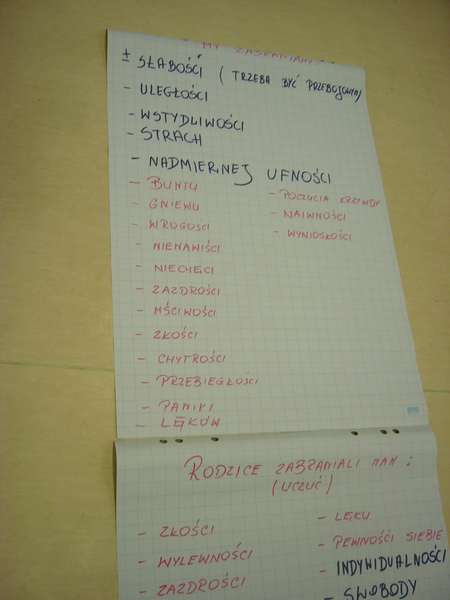 MY ZABRANIAMY
± SŁABOŚCI ( TRZEBA BYĆ PRZEBOJOWYM)
- ULEGŁOŚCI
- WSTYDLIWOŚCI
- STRACH
- NADMIERNEJ UFNOŚCI
- BUNTU
- GNIEWU
- WROGOŚCI
- NIENAWIŚCI
- NIECHĘCI
- ZAZDROŚCI
- MŚCIWOŚCI
- ZŁOŚCI
- CHYTROŚCI
- PRZEBIEGŁOŚCI
- PANIKI
- LĘKÓW
- POCZUCIA KRZYWDY
- NAIWNOŚCI
- WYNIOSŁOŚCI
RODZICE ZABRANIALI NAM :
(UCZUĆ)
- ZŁOŚCI
- WYLEWNOŚCI
- ZAZDROŚCI
- LĘKU
- PEWNOŚCI SIEBIE
- INDYWIDUALNOŚCI
- SWOBODY